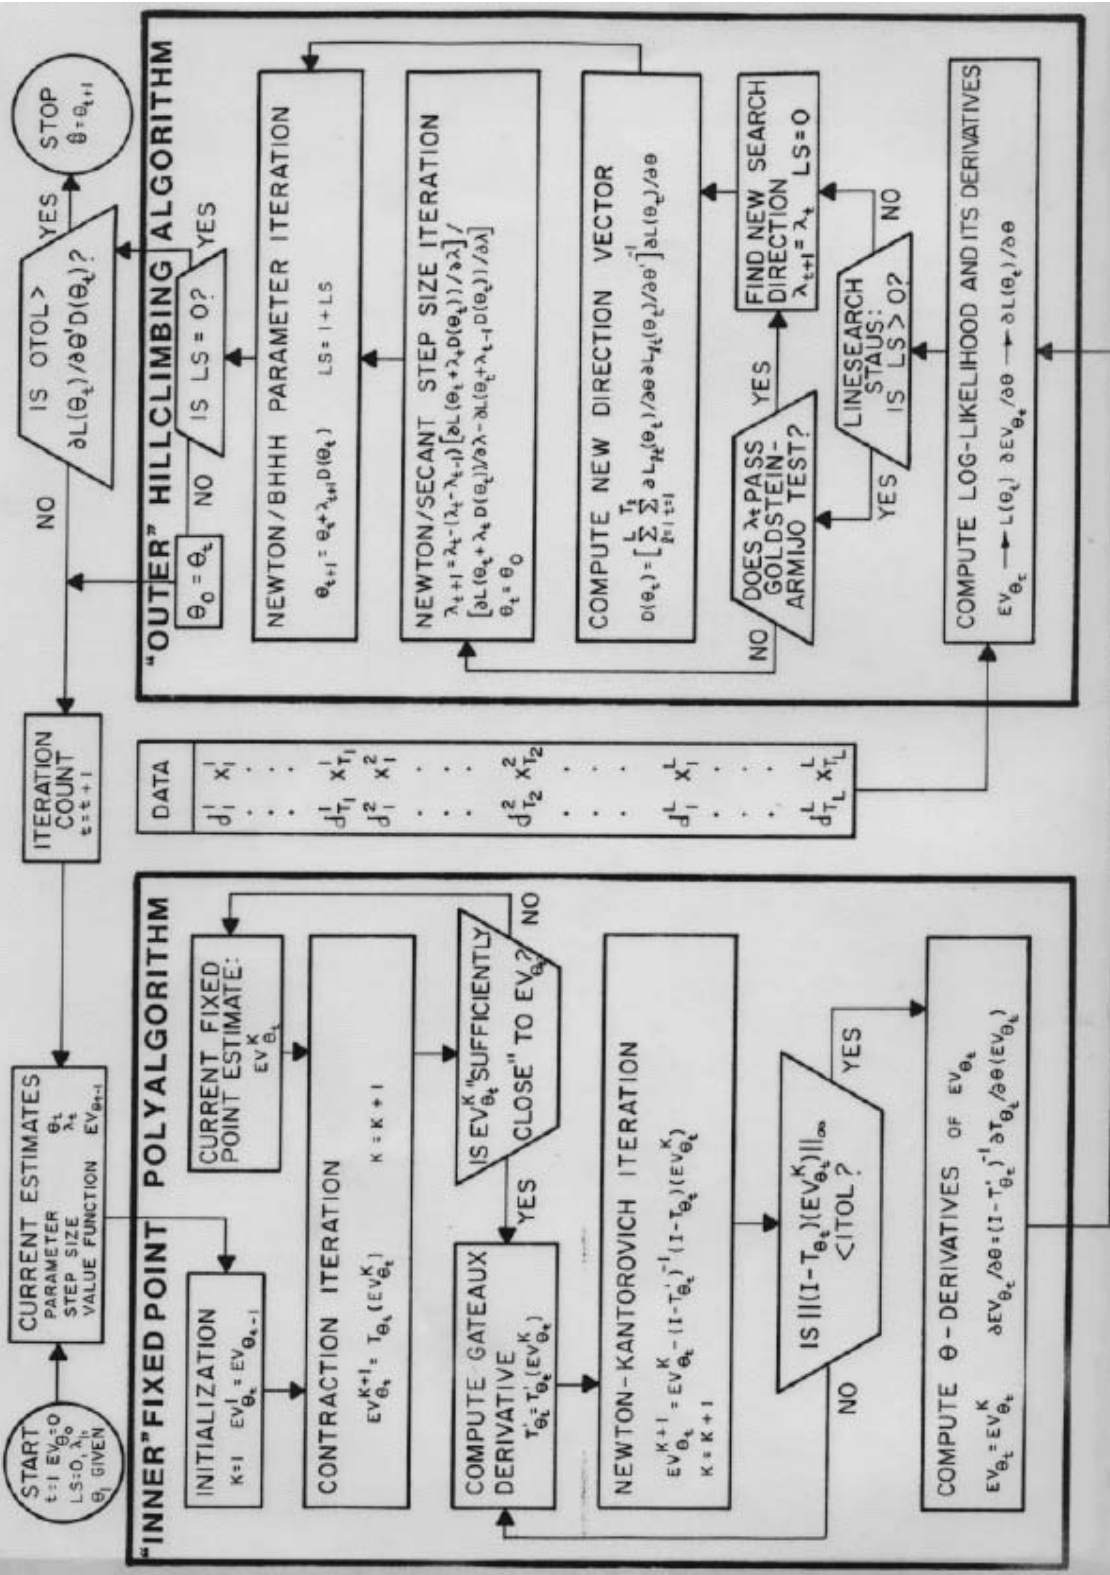 START
t=1 EV_θ₀=0
LS=0, λ₁,
θ₁ GIVEN
CURRENT ESTIMATES
PARAMETER θ_t
STEP SIZE λ_t
VALUE FUNCTION EV_θt-1
ITERATION
COUNT
t=t+1
NO
IS OTOL>
∂L(θ_t)/∂θ'D(θ_t)?
YES
STOP
θ̂=θ_t+1
"INNER" FIXED POINT POLYALGORITHM
INITIALIZATION
K=1 EV¹_θt = EV_θt-1
CURRENT FIXED
POINT ESTIMATE:
EV^K_θt
CONTRACTION ITERATION
EV^K+1_θt = T_θt (EV^K_θt) K=K+1
IS EV^K_θt "SUFFICIENTLY
CLOSE" TO EV_θt?
NO
YES
COMPUTE GATEAUX
DERIVATIVE
T'_θt = T'_θt (EV^K_θt)
NEWTON-KANTOROVICH ITERATION
EV^K+1_θt = EV^K_θt - (I-T'_θt)⁻¹ (I-T_θt)(EV^K_θt)
K=K+1
IS ||(I-T_θt)(EV^K_θt)||∞
<ITOL?
NO
YES
COMPUTE θ-DERIVATIVES OF EV_θt
EV_θt = EV^K_θt ∂EV_θt/∂θ=(I-T'_θt)⁻¹ ∂T_θt/∂θ(EV_θt)
DATA
d¹₁ X¹₁
. .
. .
. .
d¹_T₁ X¹_T₁
d²₁ X²₁
. .
. .
. .
d²_T₂ X²_T₂
. .
. .
. .
d^L₁ X^L₁
. .
. .
. .
d^L_TL X^L_TL
"OUTER" HILLCLIMBING ALGORITHM
θ₀=θ_t
NO
IS LS=0?
YES
NEWTON/BHHH PARAMETER ITERATION
θ_t+1 = θ_t+λ_t+1D(θ_t) LS=1+LS
NEWTON/SECANT STEP SIZE ITERATION
λ_t+1=λ_t-(λ_t-λ_t-1)[∂L(θ_t+λ_tD(θ_t))/∂λ]/
[∂L(θ_t+λ_tD(θ_t))/∂λ-∂L(θ_t+λ_t-1D(θ_t))/∂λ]
θ_t=θ₀
COMPUTE NEW DIRECTION VECTOR
D(θ_t)=[Σ Σ ∂L_ℓt(θ_t)/∂θ∂L_ℓt(θ_t)/∂θ']⁻¹∂L(θ_t)/∂θ
DOES λ_t PASS
GOLDSTEIN-
ARMIJO TEST?
NO
YES
FIND NEW SEARCH
DIRECTION
λ_t+1=λ_t LS=0
LINESEARCH
STAUS:
IS LS>0?
YES
NO
COMPUTE LOG-LIKELIHOOD AND ITS DERIVATIVES
EV_θt → L(θ_t) ∂EV_θt/∂θ → ∂L(θ_t)/∂θ